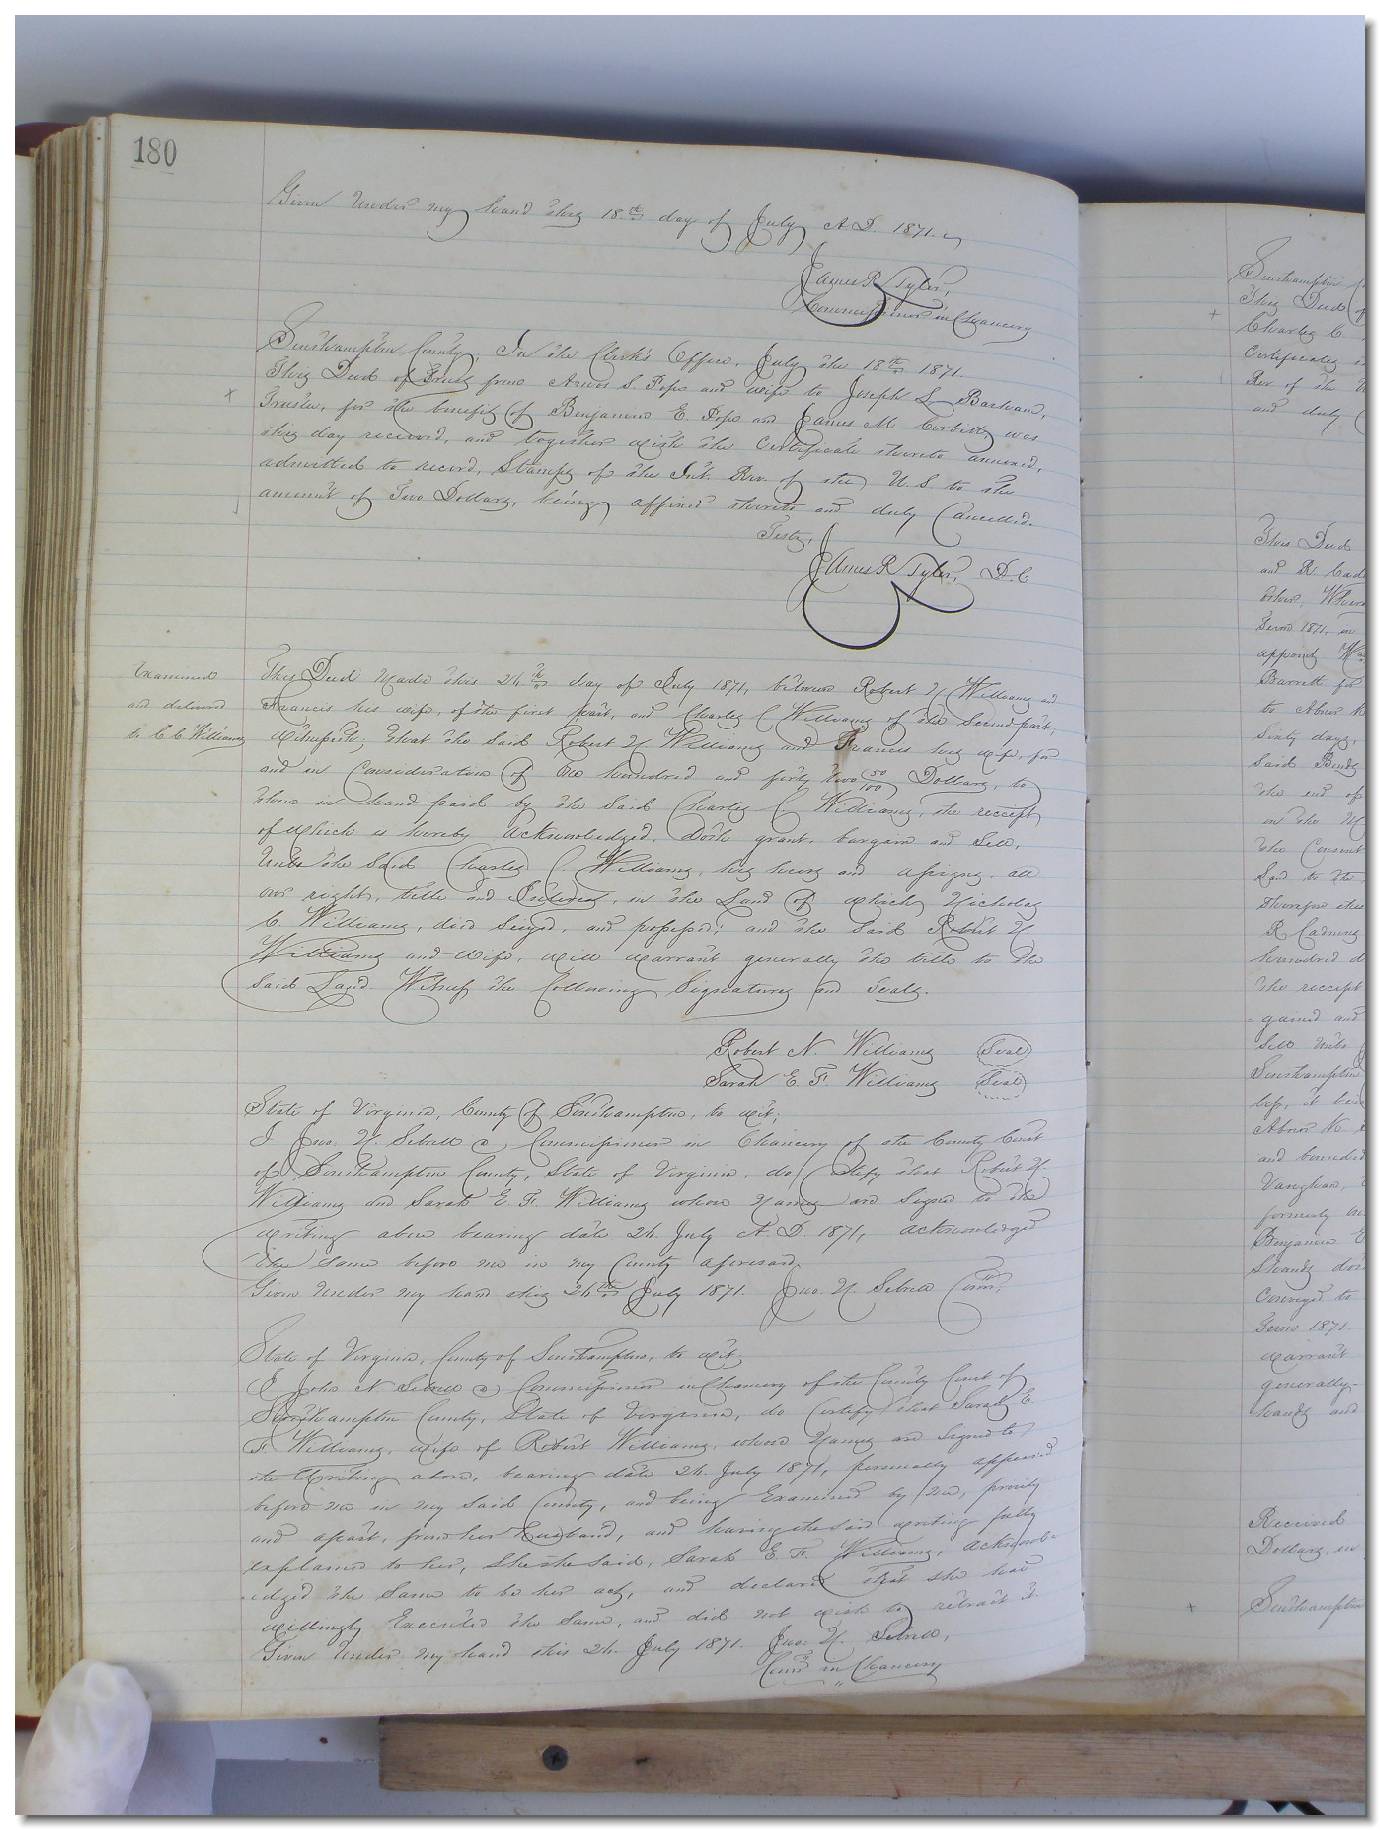 180
Given under my hand this 18th day of July A.D. 1871.
James R Tyler,
Commissioner in Chancery
Southampton County, In the Clerk's Office, July the 18th 1871.
This Deed of Trust from Amos S. Pope and wife to Joseph L Barham,
Trustee, for the benefit of Benjamin E. Pope and James M. Corbitt was
this day received, and together with the Certificate thereto annexed,
admitted to record, Stamps of the Int. Rev. of the U. S. to the
amount of Two Dollars, being affixed thereto and duly Cancelled
Teste,
James R Tyler, D.C
Examined
and delivered
to C C Williams
This Deed Made this 24th day of July 1871, between Robert N Williams and
Francis his wife, of the first part, and Charles C Williams of the Second part,
Witnesseth; that the Said Robert N. Williams and Francis his wife, for
and in Consideration of hundred and fifty two 50/100 Dollars, to
them in hand paid by the Said Charles C Williams, the receipt
of which is hereby acknowledged, doth grant, bargain and Sell,
Unto the Said Charles C. Williams, his heirs and assigns, all
our right, title and Interest, in the Land of which Nicholas
C. Williams, died Seized, and possessed; and the Said Robert N
Williams and wife, will warrant generally the title to the
Said Land Witness the following Signatures and Seals.
Robert N. Williams Seal
Sarah E. F. Williams Seal
State of Virginia, County of Southampton, to wit;
I Jno. N. Sebrell a Commissioner in Chancery of the County Court
of Southampton County, State of Virginia, do Certify that Robert N.
Williams and Sarah E. F. Williams whose Names are Signed to the
writing above bearing date 24 July A. D. 1871, acknowledged
the Same before me in my County aforesaid
Given Under my hand this 24th July 1871. Jno. N. Sebrell Comr.
State of Virginia, County of Southampton, to wit;
I John N. Sebrell a Commissioner in Chancery of the County Court of
Southampton County, State of Virginia, do Certify that Sarah E.
F. Williams, wife of Robert Williams, whose Names are Signed to
the Writing above, bearing date 24. July 1871, personally appeared
before me in my Said County, and being Examined by me, privily
and apart, from her Husband, and having the Said writing fully
explained to her, She the Said, Sarah E. F. Williams, acknowl-
-edged the Same to be her act, and declared that She had
willingly Executed the Same, and did not wish to retract it.
Given Under my hand this 24. July 1871. Jno. N. Sebrell,
Comr in Chancery
Southampton
This Deed
Charles C.
Certificates
Rev of the
and duly
This Deed
and R.
Term 1871, in
appoint
Barrett for
to Abner
Sixty days,
Said
the end of
in the
the Consent
Land to the
Therefore
R
hundred
the receipt
gained and
Sell unto
Southampton
less, it
Abner
and bounded
Vaughan,
formerly
Benjamin E
Stands
Conveyed to
Term 1871.
warrant
generally
hands and
Received
Dollars, in
Southampton